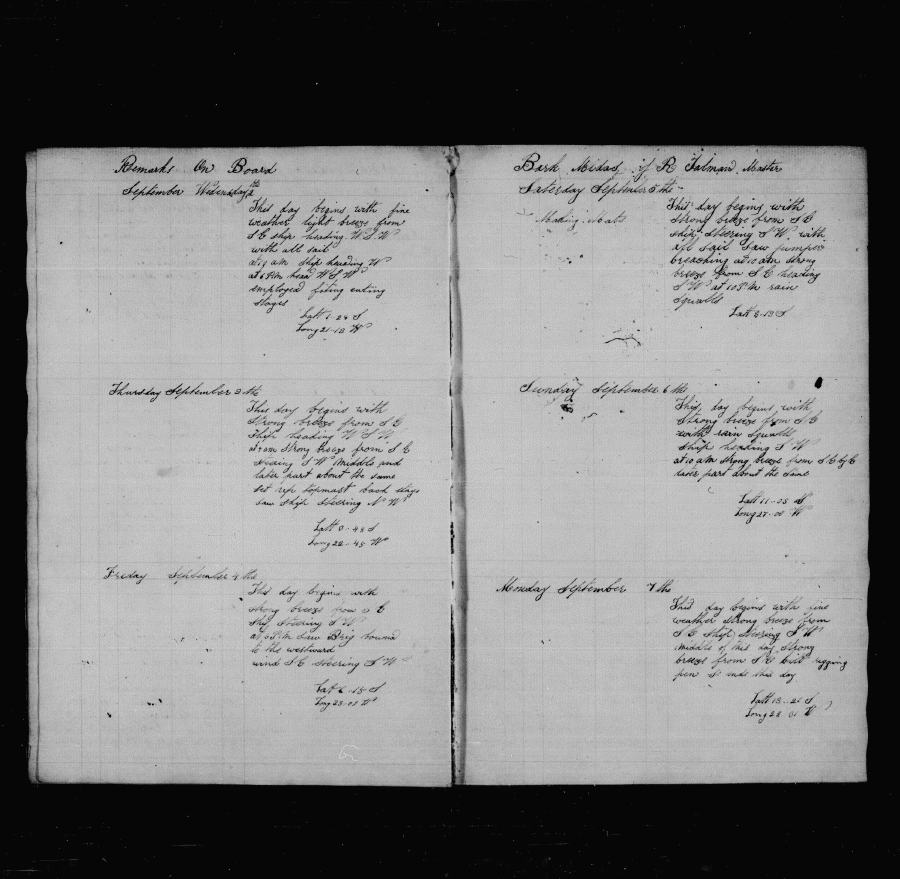 Remarks On Board
September Wednesday
This day begins with fine
weather light breeze from
S E ship heading W S W
with all sail
at 9 AM Ship heading W
at 6 PM head W S W
employed fiting cuting
stages
Latt 1-24 S
Long 21-18 W
Thursday September 3 th
This day begins with
strong breeze from S E
Ship heading W S W
at 9 AM strong breeze from S E
steering S W middle and
later part about the same
set up topmast back stays
saw ship steering N W
Latt 3-48 S
Long 22-45 W
Friday September 4 th
This day begins with
strong breeze from S E
Ship steering S W
at 5 PM saw Brig bound
to the westward
wind S E steering S W
Latt 6-15 S
Long 23-01 W
Bark Midas of R Talman Master
Saterday September 5 th
Making Mats
This day begins with
strong breeze from S E
ship steering S W with
all sail saw jumper
breaching at 10 AM strong
breeze from S E heading
S W at 10 PM rain
squalls
Latt 8-13 S
Sunday September 6 th
This day begins with
strong breeze from S E
with rain squalls
ship heading S W
at 10 AM strong breeze from S E by E
later part about the same
Latt 11-03
Long 27-08 W
Monday September 7 th
This day begins with fine
weather strong breeze from
S E ship steering S W
middle of this day strong
breeze from S E bilt
pen so ends this day
Latt 13-21 S
Long 28-01 W